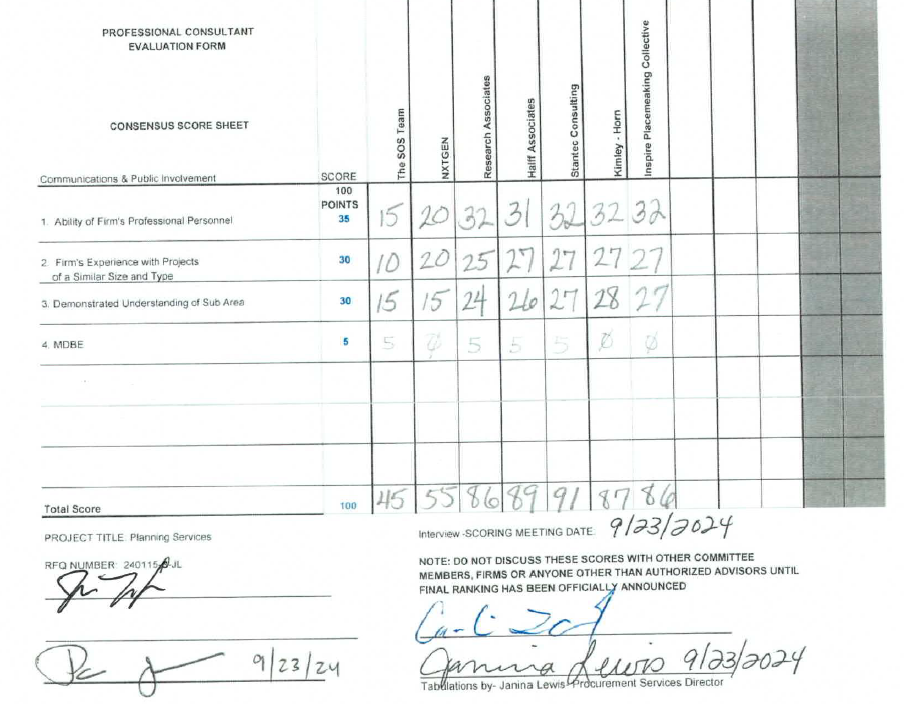 PROFESSIONAL CONSULTANT
EVALUATION FORM
CONSENSUS SCORE SHEET
Communications & Public Involvement SCORE The SOS Team NXTGEN Research Associates Halff Associates Stantec Consulting Kimley - Horn Inspire Placemeaking Collective
100
POINTS
1. Ability of Firm's Professional Personnel 35 15 20 32 31 32 32 32
2. Firm's Experience with Projects 30 10 20 25 27 27 27 27
of a Similar Size and Type
3. Demonstrated Understanding of Sub Area 30 15 15 24 26 27 28 27
4. MDBE 5 5 Ø 5 5 5 Ø Ø
Total Score 100 45 55 86 89 91 87 86
PROJECT TITLE: Planning Services
Interview -SCORING MEETING DATE: 9/23/2024
RFQ NUMBER: 240115- -JL
NOTE: DO NOT DISCUSS THESE SCORES WITH OTHER COMMITTEE
MEMBERS, FIRMS OR ANYONE OTHER THAN AUTHORIZED ADVISORS UNTIL
FINAL RANKING HAS BEEN OFFICIALLY ANNOUNCED
9/23/24
Janina Lewis 9/23/2024
Tabulations by- Janina Lewis- Procurement Services Director